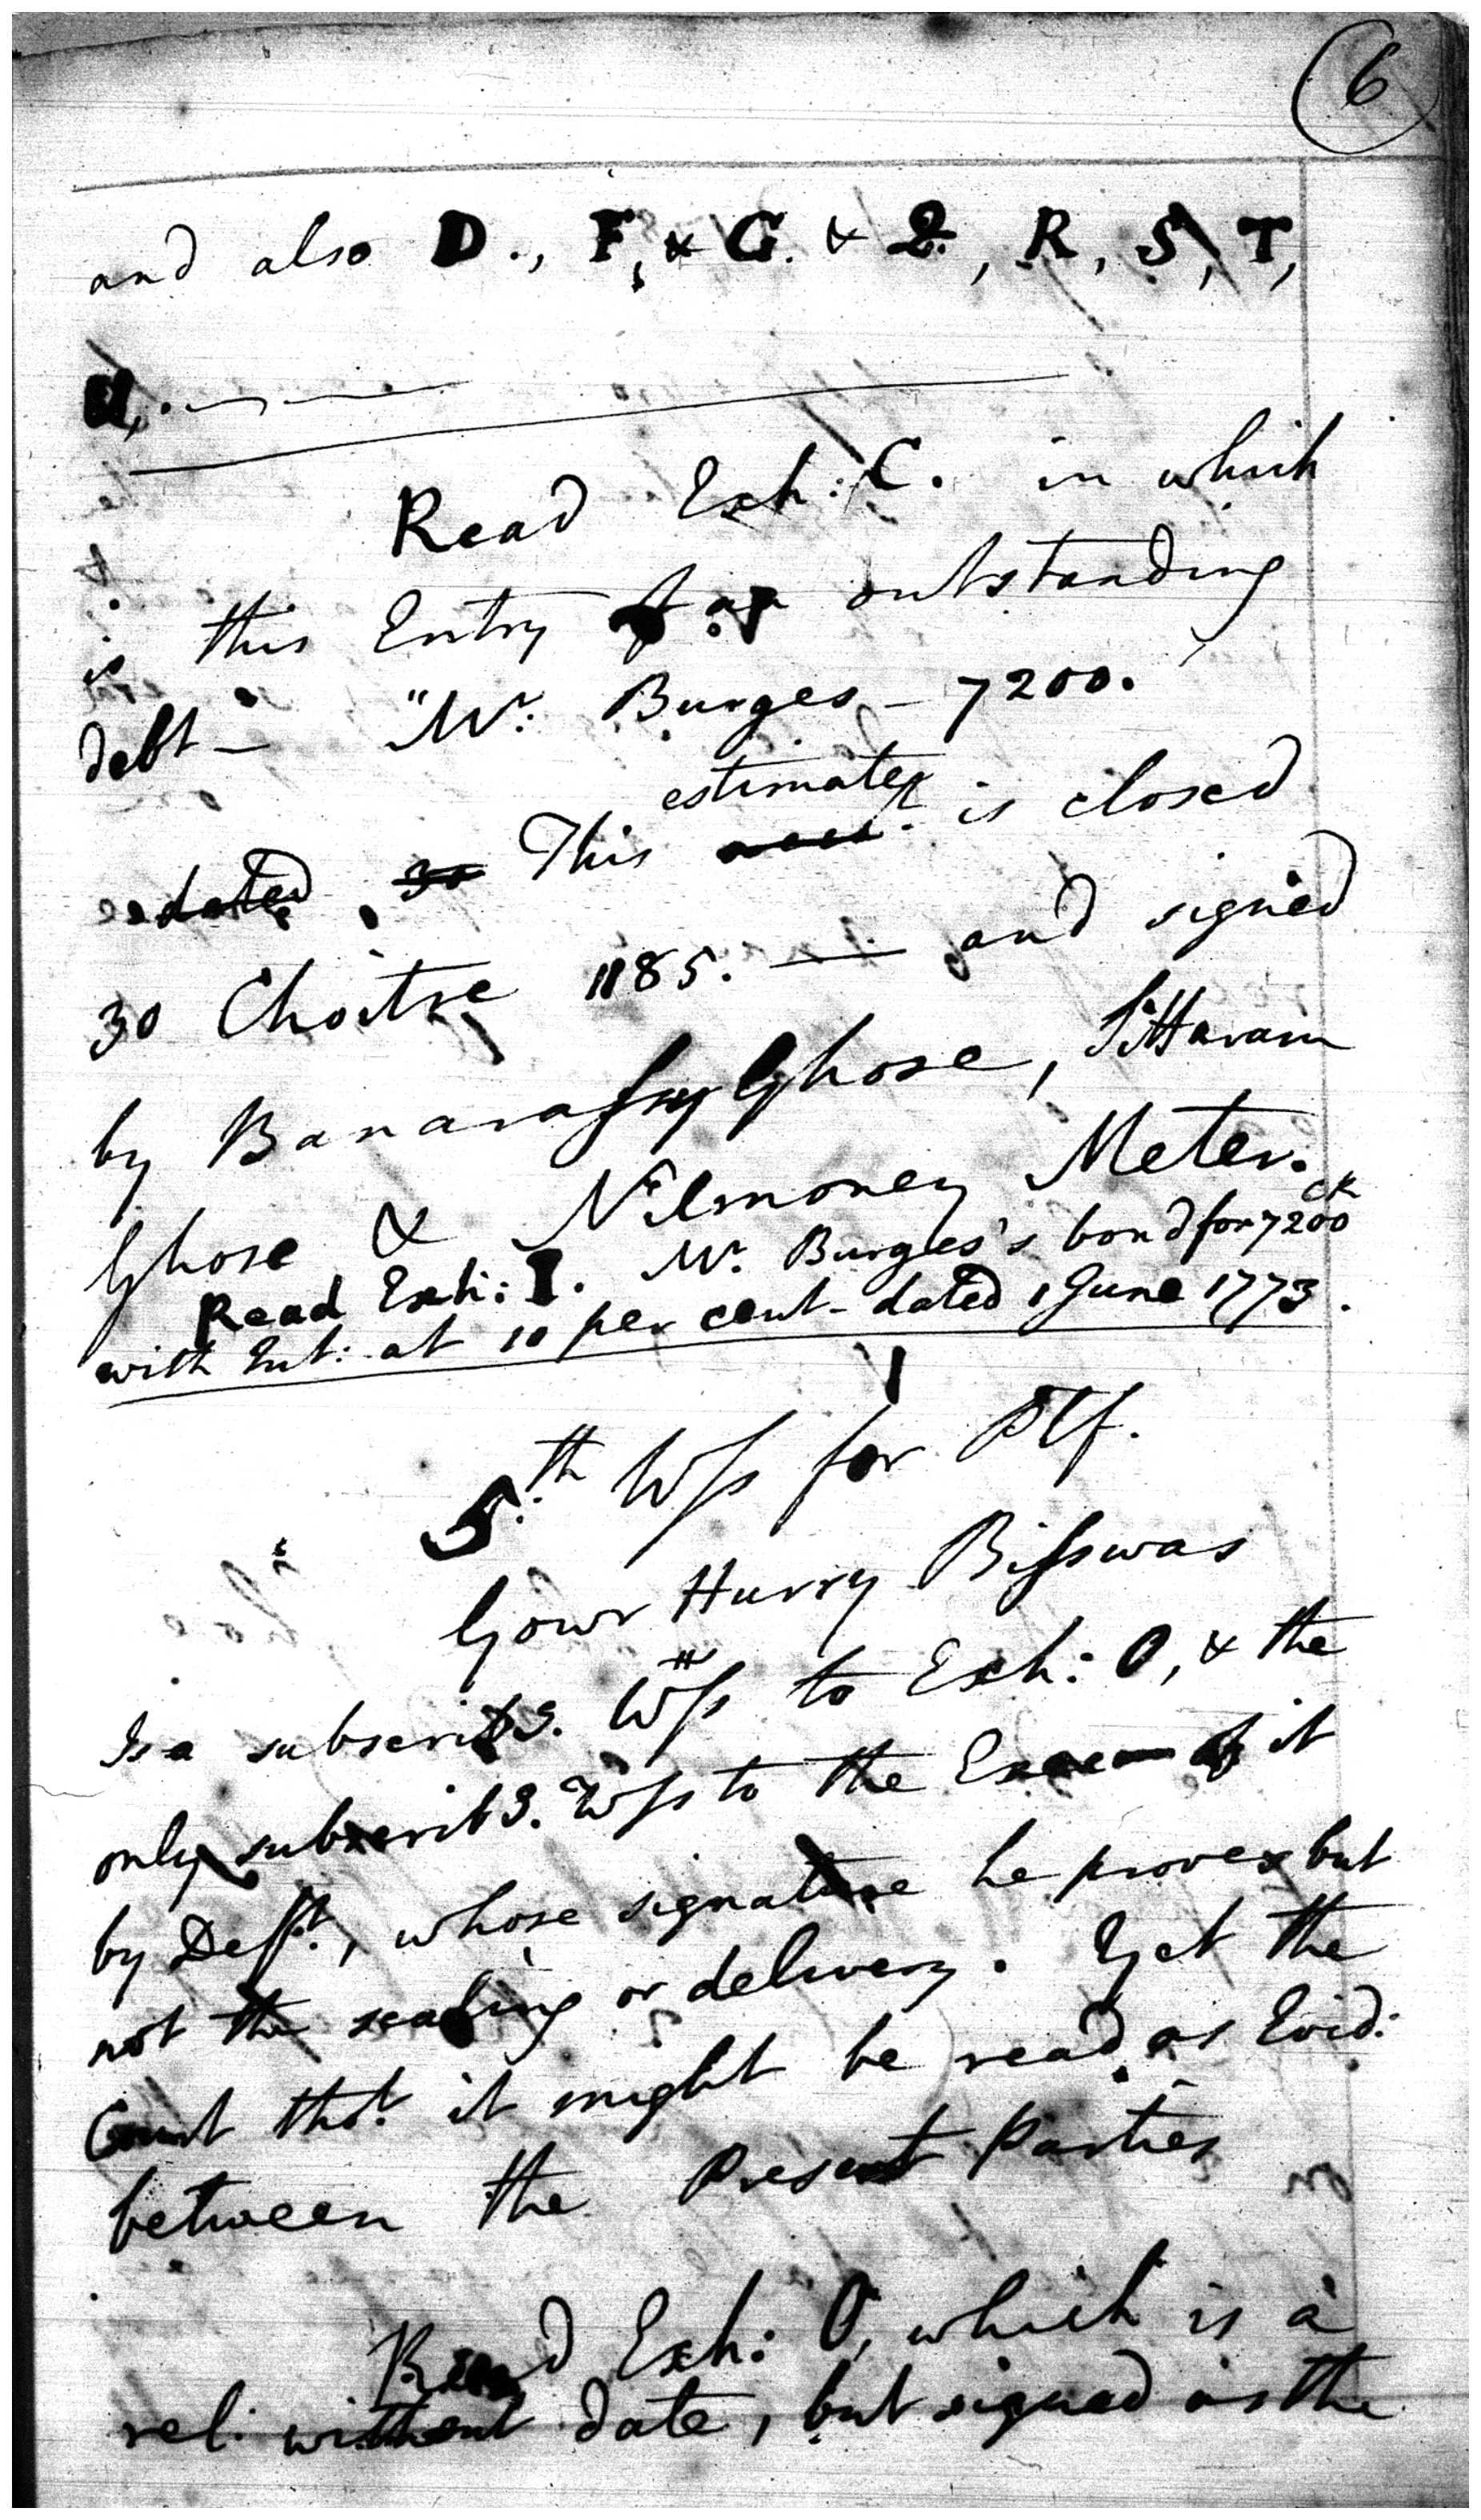 6
and also D., F, & G. & Q, R, S, T,
U,
Read Exh: C. in which
is this Entry of an outstanding
debt — "Mr. Burges — 7200.
estimate
dated 30 This acct. is closed
30 Choitre 1185. — and signed
by Banarassy Ghose, Sittaram
Ghose & Nilmoney Meter.
Read Exh: I. Mr. Burges's bond for 7200
CR
with Int: at 10 per cent - dated 1 June 1773.
5th Wss for Plf.
Gowr Hurry Bisswas
Is a subscribg. Wss to Exh: O, & the
only subscribg. Wss to the Execon of it
by Deft., whose signature he proves but
not the sealing or delivery. Yet the
Court thot. it might be read as Evid:
between the Present Parties
Read Exh: O, which is a
rel: without date, but signed as the